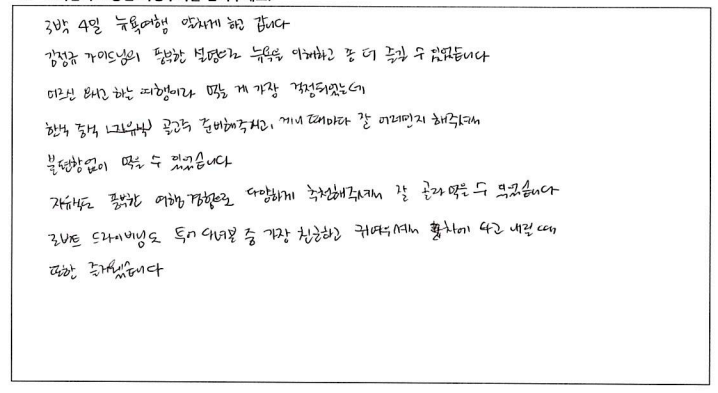 3박 4일 뉴욕여행 알차게 하고 갑니다
강정규 가이드님의 풍부한 설명으로 뉴욕을 이해하고 좀 더 즐길 수 있었습니다
어르신 모시고 하는 여행이라 먹는 게 가장 걱정되었는데
한식 중식 (자유식) 골고루 준비해주시고, 끼니 때마다 잘 어레인지 해주셔서
불편함없이 먹을 수 있었습니다
자유식도 풍부한 여행 경험으로 다양하게 추천해주셔서 잘 골라 먹을 수 있었습니다
로버트 드라이버님도 투어 다녀본 중 가장 친근하고 귀여우셔서 황차에 타고 내릴 때
또한 즐거웠습니다